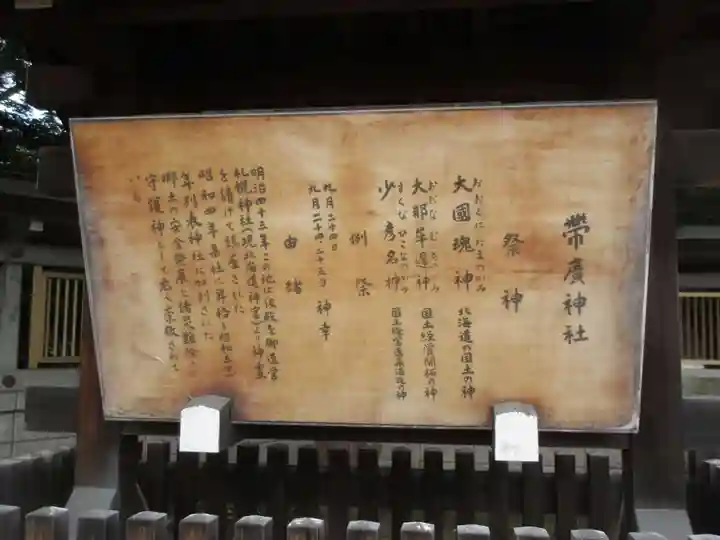 帶廣神社
祭神
おおくにたまのかみ
大國魂神 北海道の国土の神
おおなむちのかみ
大那牟遅神 国土経営開拓の神
すくなひこなのかみ
少彦名神 国土経営
例祭
九月二十四日
九月二十四・二十五日 神幸
由緒
明治四十三年この地に仮殿を御造営
札幌神社(現北海道神宮)より神霊
を請けて鎮座された
昭和四年県社に昇格し昭和五
年別表神社に加列された
郷土の安全発展と諸災難除
守護神として君く崇敬されて
いる